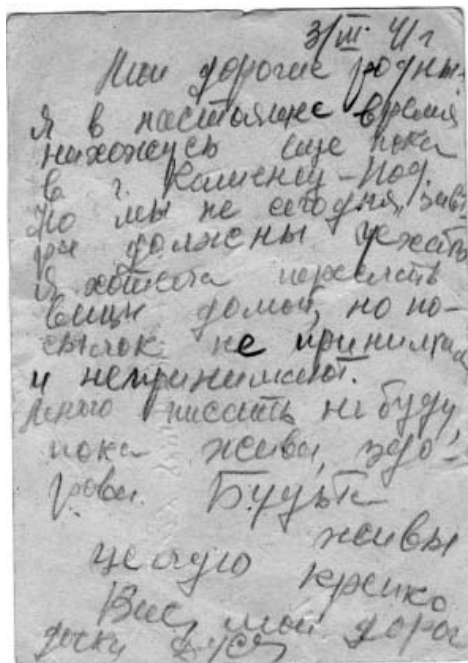 3/III 41 г
Мои дорогие родны-
я в настоящее время
нахожусь еще пока
в г. Каменец-Под.
Но мы не сегодня, зав-
ра должны уехать
я хотела переслать
вещи домой, но по-
сылок не принима
и непринимают.
Много писать не буду,
пока жива, здо-
рова. Будьте
живы
целую крепко
Вас, мои дорог
дочка Дуся